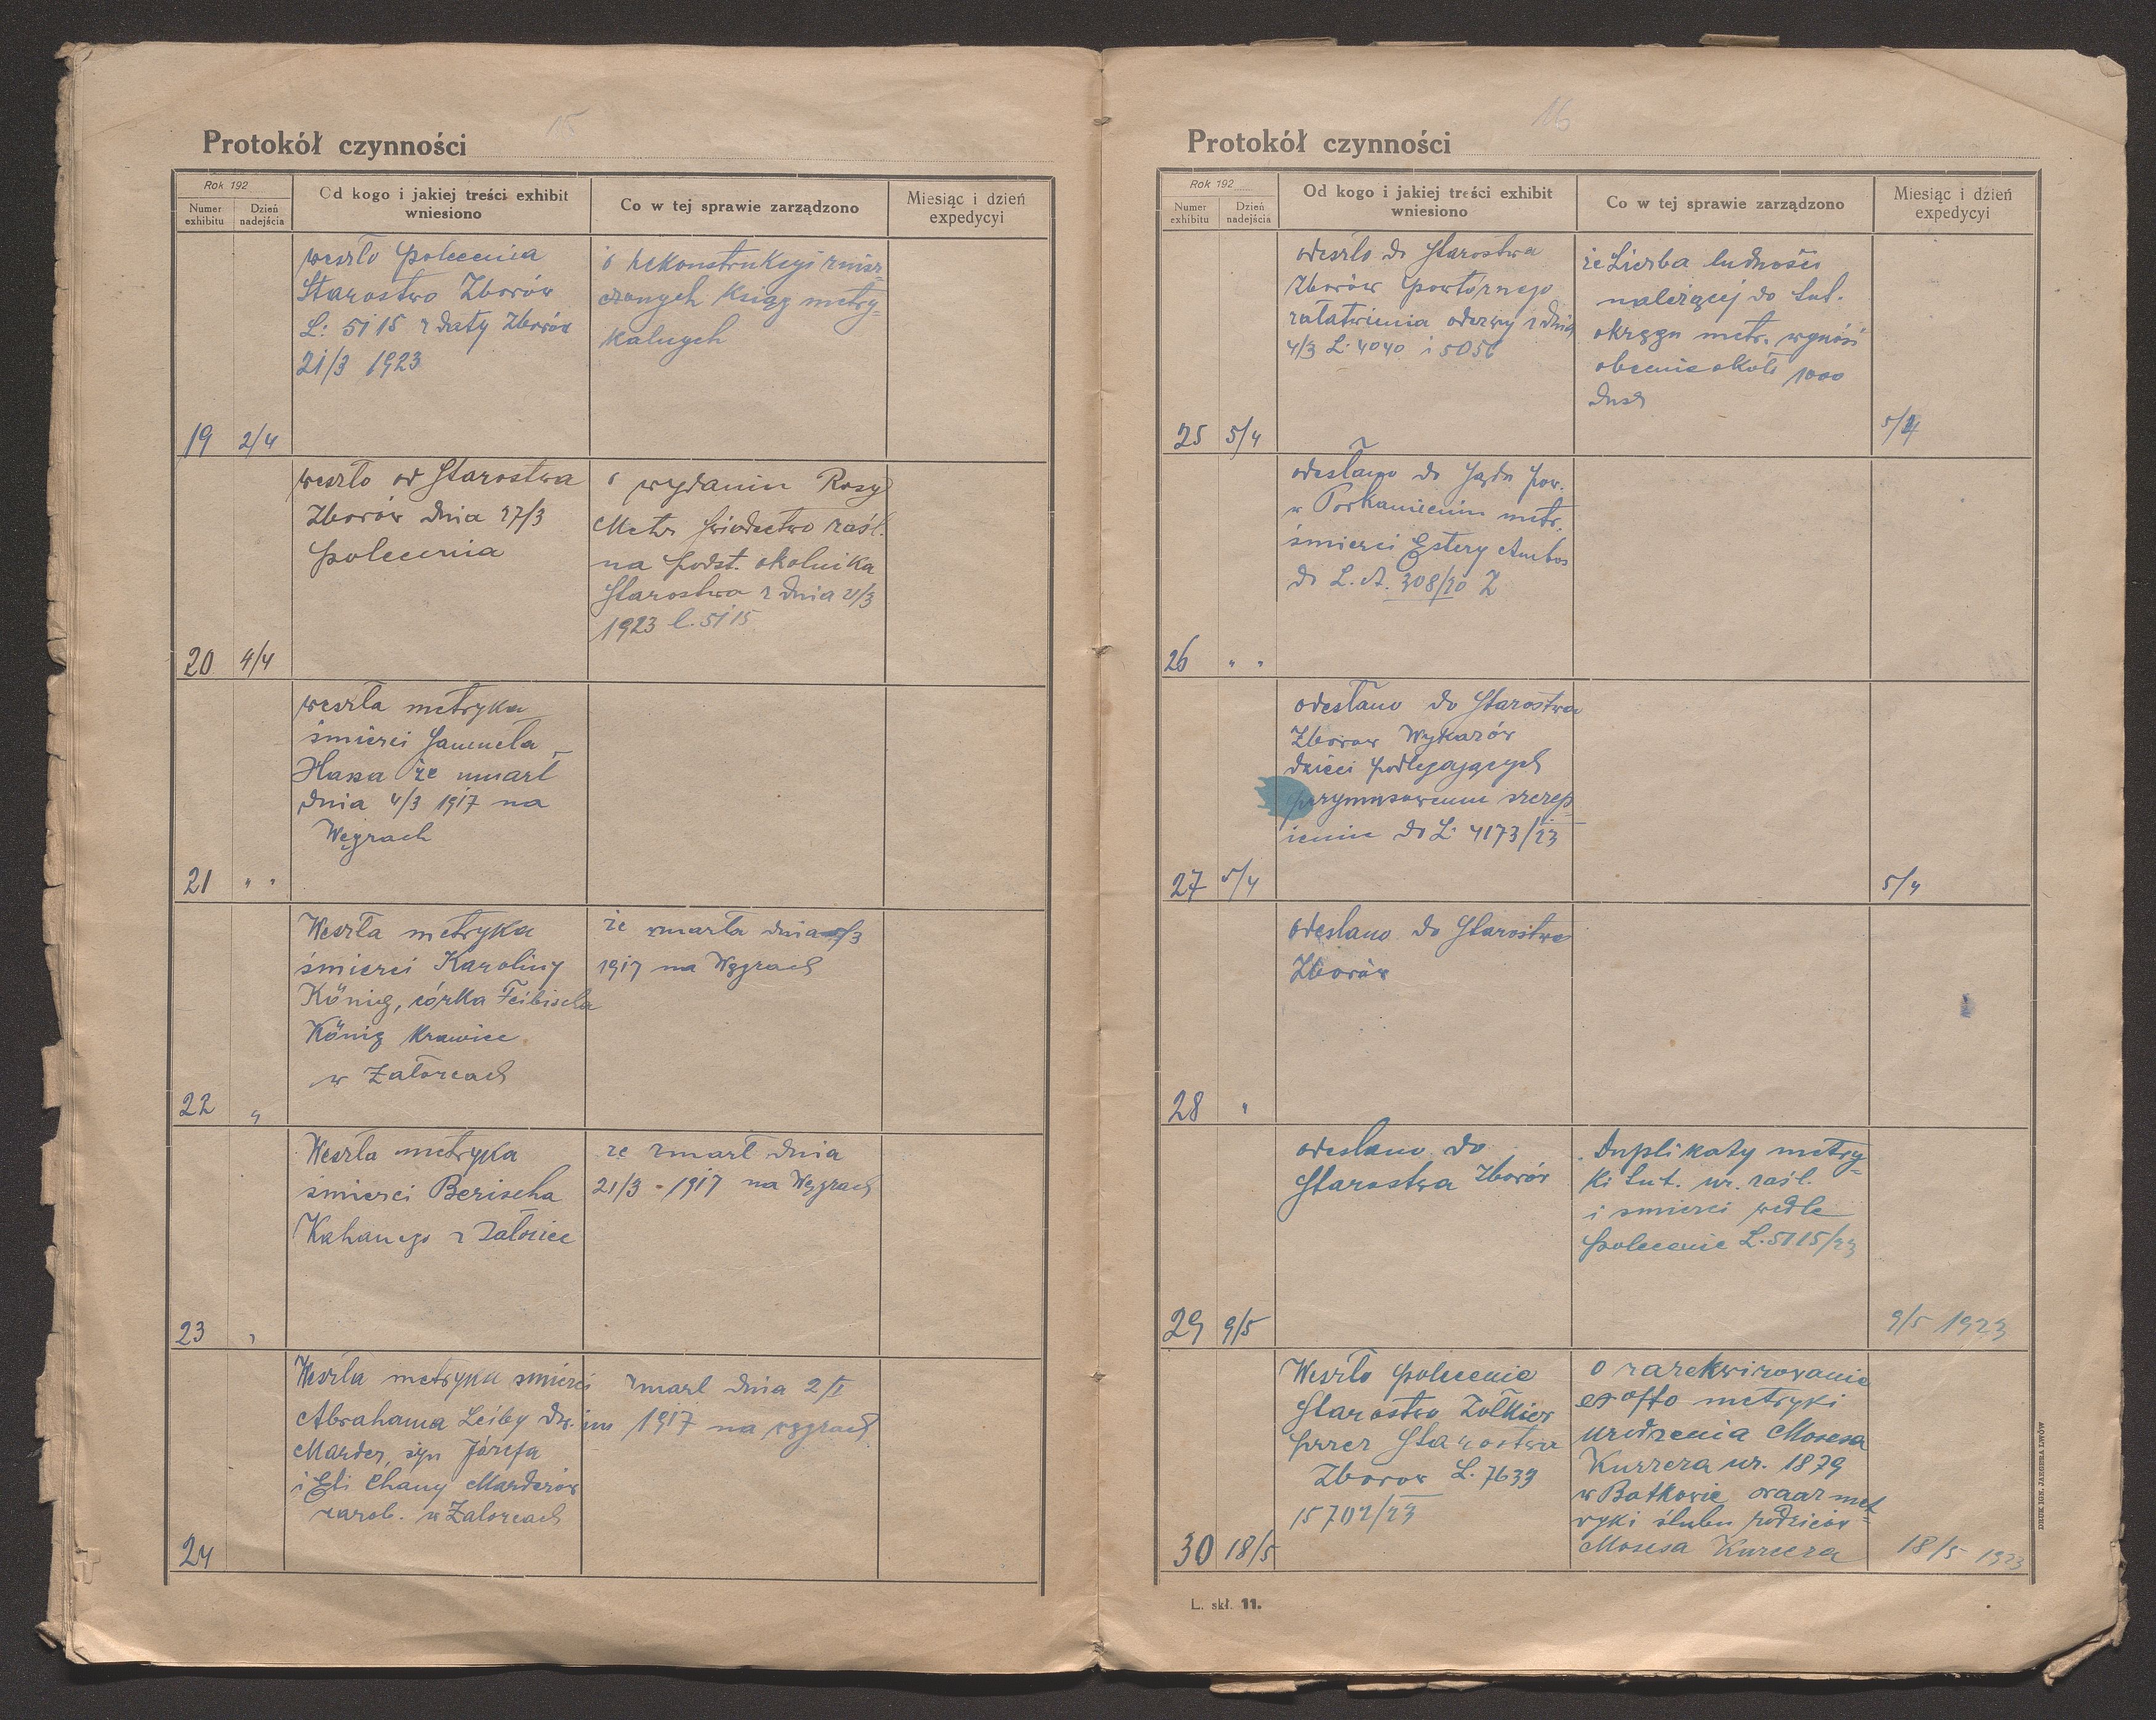 15
Protokół czynności
Rok 192
Numer exhibitu
Dzień nadejścia
Od kogo i jakiej treści exhibit
wniesiono
Co w tej sprawie zarządzono
Miesiąc i dzień
expedycyi
weszło polecenia
Starostwo Zborów
L: 5115 z daty Zborów
21/3 1923
o rekonstrukcyi znisz-
czonych ksiąg metry-
kalnych
19 2/4
weszło od Starostwa
Zborów dnia 27/3
polecenia
o wydaniu
Metr. świadectwo zaśl.
na podst. okolnika
Starostwa z dnia 21/3
1923 l. 5115
20 4/4
weszła metryka
śmierci Samuela
że umarł
dnia 4/3 1917 na
Węgrach
21 " "
Weszła metryka
śmierci Karoliny
König, córka Feibischa
König krawiec
w Załozcach
że zmarła dnia /3
1917 na Węgrach
22 "
Weszła metryka
śmierci Berischa
Kahanego z Załoziec
że zmarł dnia
21/3 - 1917 na Węgrach
23 "
Weszła metryka śmierci
Abrahama Leiby dw. im
Marder, syn Józefa
i Eli Chany Marderów
zarob. w Zalozcach
zmarł dnia 2/I
1917 na węgrach
24
16
Protokół czynności
Rok 192
Numer exhibitu
Dzień nadejścia
Od kogo i jakiej treści exhibit
wniesiono
Co w tej sprawie zarządzono
Miesiąc i dzień
expedycyi
odeszło do Starostwa
Zborów powtórnego
załatwienia odezwy z dnia
4/3 L: 4040 i 5056
że Liczba ludności
należącej do tut.
okręgu metr. wynosi
obecnie około 1000
dusz
25 5/4
5/4
odesłano do Sądu pow.
w Podkamieniu metr.
śmierci Estery Ambos
do L. A. 308/20 Z
26 " "
odesłano do Starostwa
Zborow Wykazów
dzieci podlegających
przymusowemu szczep-
ieniu do L: 4173/23
27 5/4
5/4
odesłano do Starostwa
Zborów
28 "
odesłano do
Starostwa Zborów
Duplikaty metry-
ki tut. ur. zaśl.
i smierci wedle
polecenie L. 5115/23
29 9/5
9/5 1923
Weszło polecenie
Starostwo Żółkiew
przez Starostwa
Zborow L. 7639
15702/23
o zarekwirowanie
ex offo metryki
urodzenia Mosesa
Kurzera ur. 1879
w Batkowie oraz met
ryki ślubu rodziców
Mosesa Kurzera
30 18/5
18/5 1923
L. skł. 11.
DRUK IGN. JAEGERA LWÓW